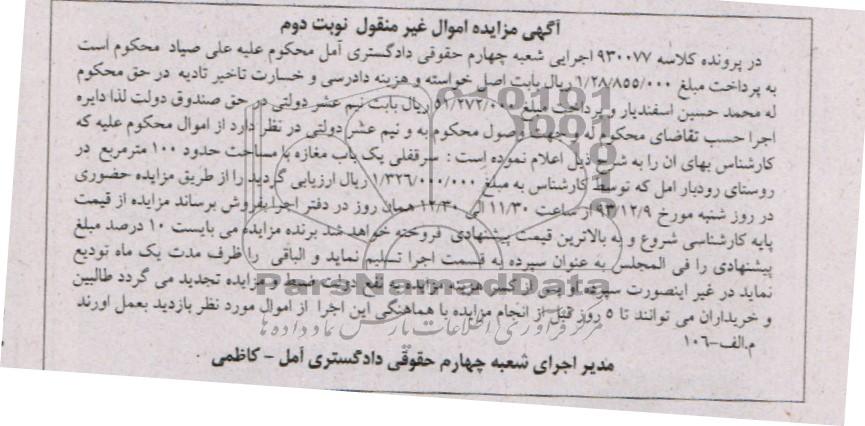 آگهی مزایده اموال غیر منقول نوبت دوم
در پرونده کلاسه ۹۳۰۰۷۷ اجرایی شعبه چهارم حقوقی دادگستری آمل محکوم علیه علی صیاد محکوم است
به پرداخت مبلغ ۱/۲۸/۸۵۵/۰۰۰ ریال بابت اصل خواسته و هزینه دادرسی و خسارت تاخیر تادیه در حق محکوم
له محمد حسین اسفندیار و پرداخت مبلغ ۵۱/۲۷۲/۰۰۰ ریال بابت نیم عشر دولتی در حق صندوق دولت لذا دایره
اجرا حسب تقاضای محکوم له و جهت وصول محکوم به و نیم عشر دولتی در نظر دارد از اموال محکوم علیه که
کارشناس بهای ان را به شرح ذیل اعلام نموده است : سرقفلی یک باب مغازه با مساحت حدود ۱۰۰ مترمربع در
روستای رودبار امل که توسط کارشناس به مبلغ ۱/۳۲۶/۰۰۰/۰۰۰ ریال ارزیابی گردید را از طریق مزایده حضوری
در روز شنبه مورخ ۹۳/۱۲/۹ از ساعت ۱۱/۳۰ الی ۱۲/۳۰ همان روز در دفتر اجرا بفروش برساند مزایده از قیمت
پایه کارشناسی شروع و به بالاترین قیمت پیشنهادی فروخته خواهد شد برنده مزایده می بایست ۱۰ درصد مبلغ
پیشنهادی را فی المجلس به عنوان سپرده به قسمت اجرا تسلیم نماید و الباقی را ظرف مدت یک ماه تودیع
نماید در غیر اینصورت سپرده او پس از کسر هزینه مزایده به نفع دولت ضبط و مزایده تجدید می گردد طالبین
و خریداران می توانند تا ۵ روز قبل از انجام مزایده با هماهنگی این اجرا از اموال مورد نظر بازدید بعمل اورند
م.الف-۱۰۶
مدیر اجرای شعبه چهارم حقوقی دادگستری آمل - کاظمی
ParsNamadData
مرکز فرآوری اطلاعات پارس نماد داده ها